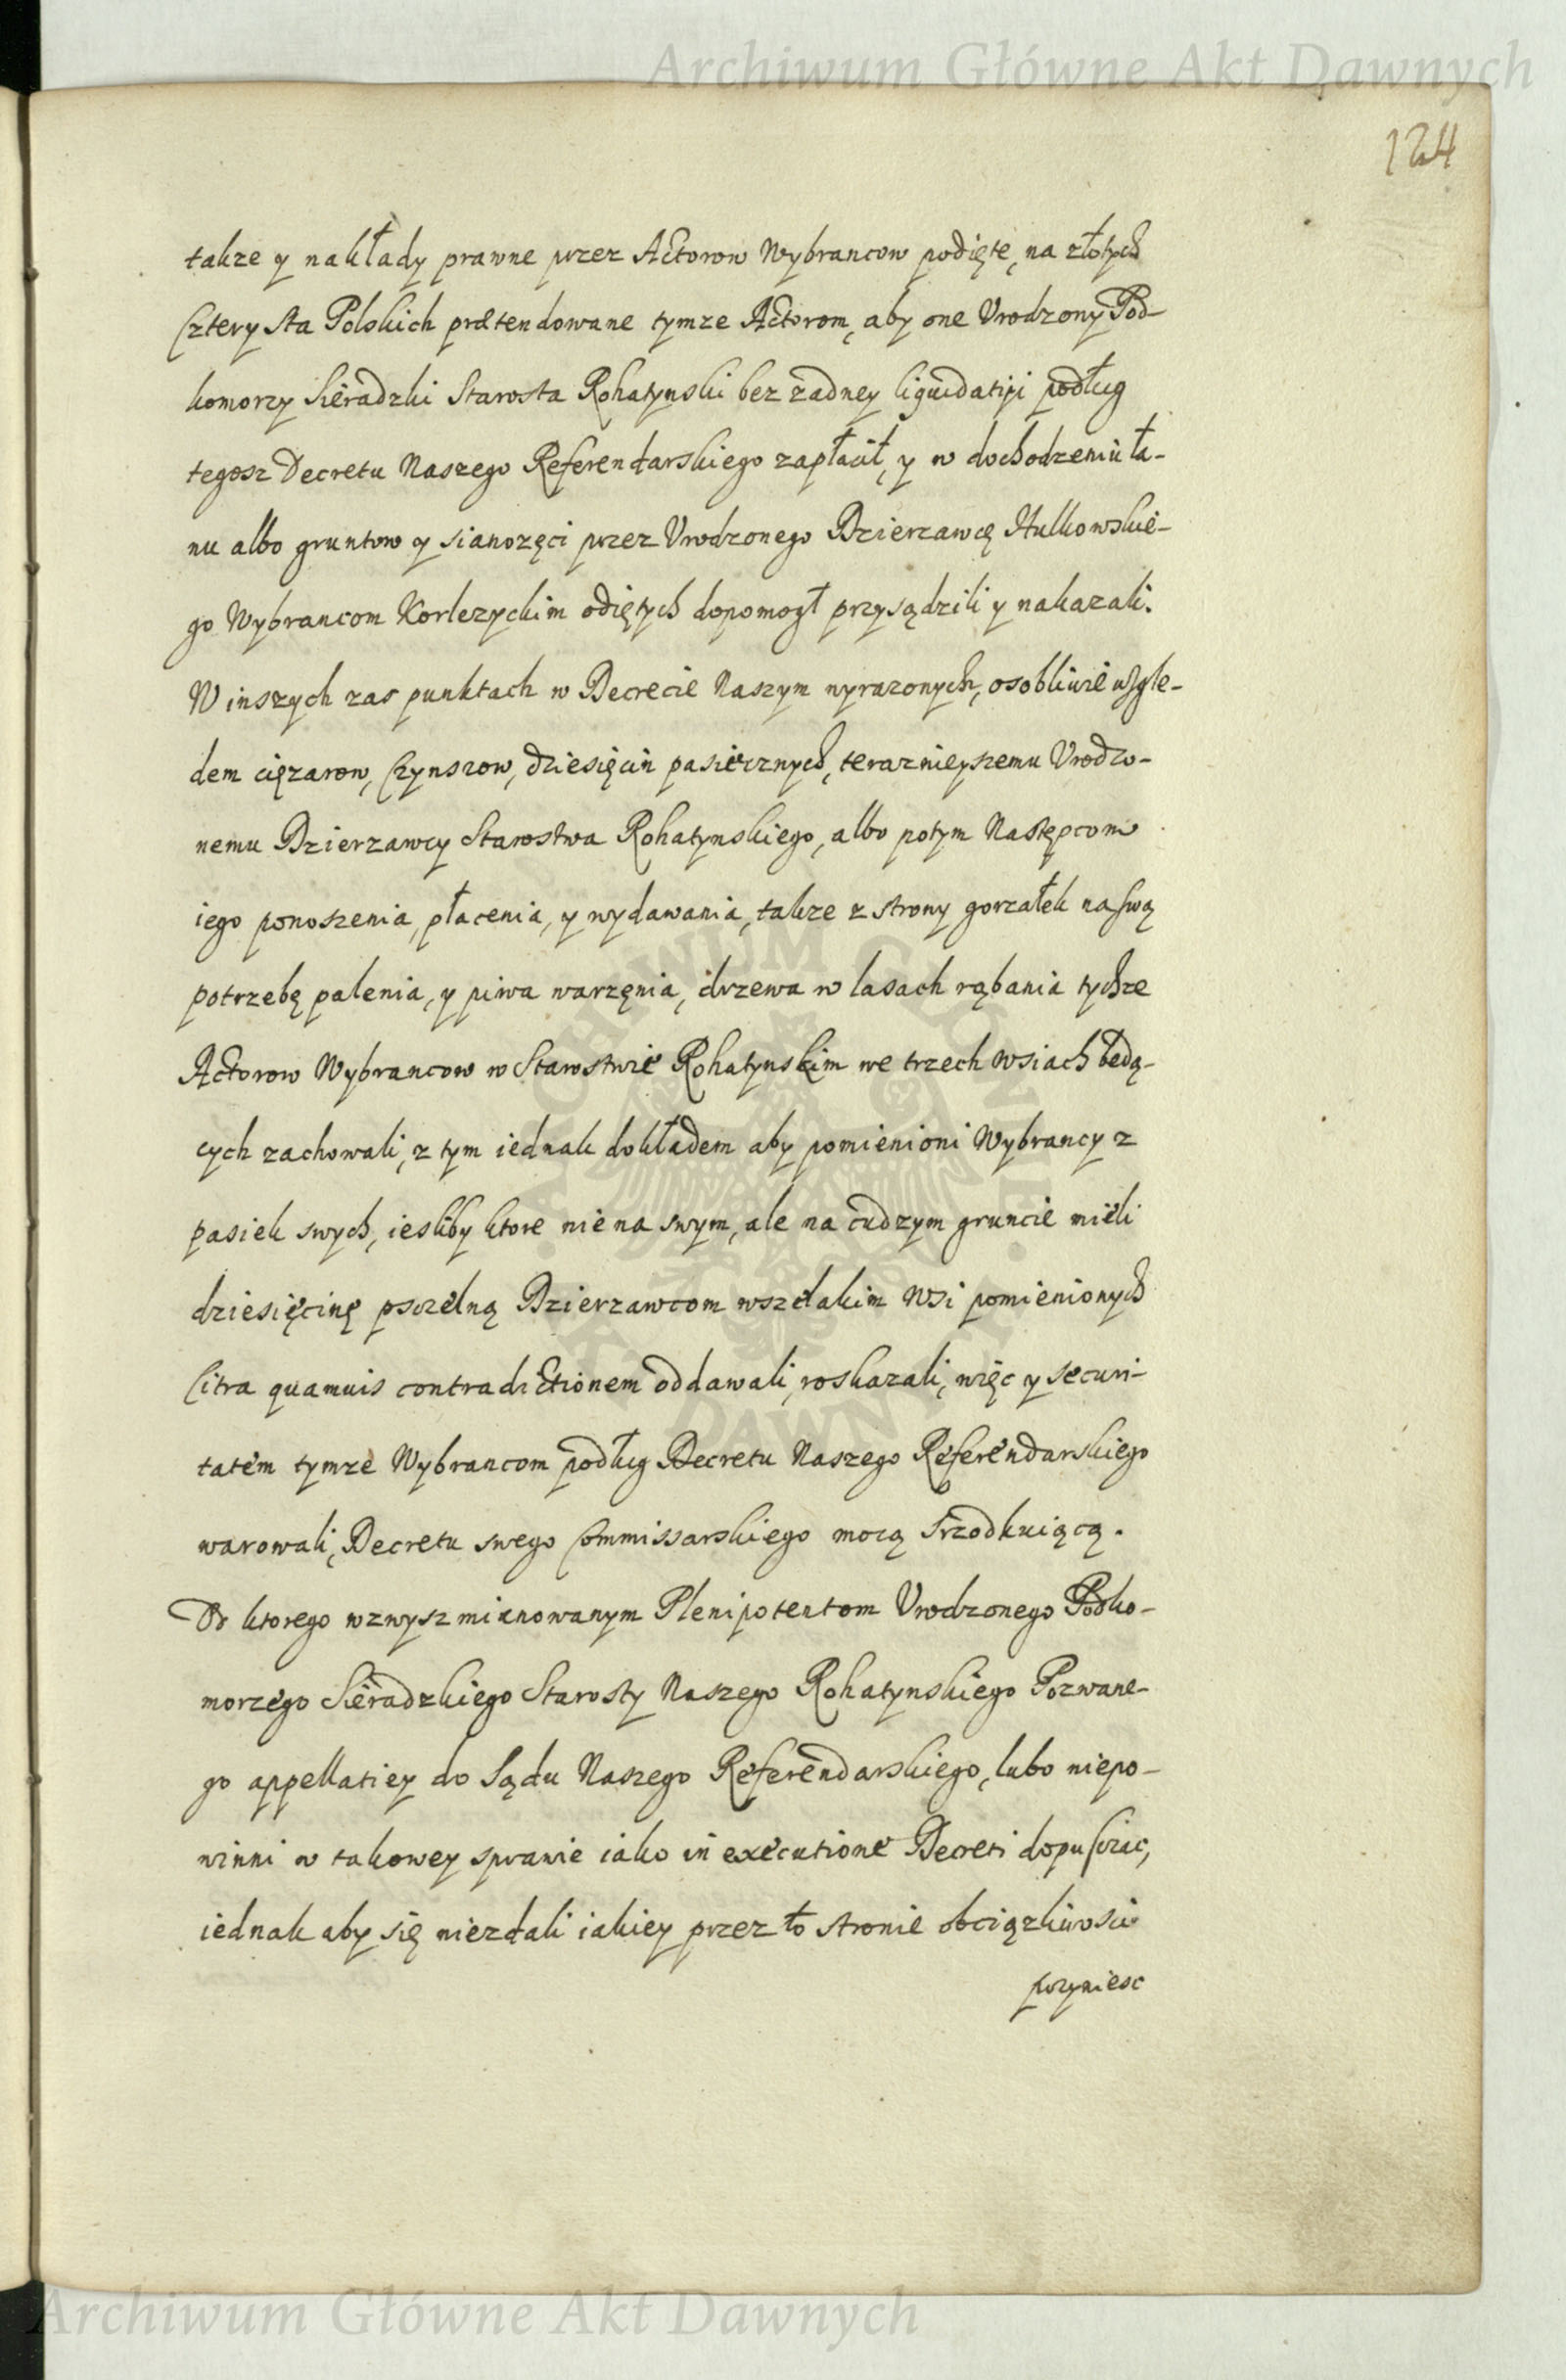 Archiwum Główne Akt Dawnych
124
takze y nakłady prawne przez Actorow Wybrancow podięte, na złotych
Cztery sta Polskich prætendowane tymze Actorom, aby one Vrodzony Pod-
komorzy Sieradzki Starosta Rohatynski bez zadney liquidatiji podług
tegosz Decretu Naszego Referendarskiego zapłacił, y w dochodzeniu ła-
nu albo gruntow y sianozęci przez Vrodzonego Dzierzawcę Hulkowskie-
go Wybrancom Korlezyckim odiętych dopomogł przysądzili y nakazali.
W inszych zas punktach w Decrecie Naszym wyrazonych, osobliwie wzgle-
dem cięzarow, Czynszow, dziesięcin pasiecznych, teraznieyszemu Vrodzo-
nemu Dzierzawcy Starostwa Rohatynskiego, albo potym Następcom
iego ponoszenia, płacenia, y wydawania, takze z strony gorzałek na swą
potrzebę palenia, y piwa warzęnia, i drzewa w lasach rąbania tychze
Actorow Wybrancow w Starostwie Rohatynskim we trzech wsiach będą-
cych zachowali, z tym iednak dokładem aby pomienioni Wybrancy z
pasiek swych, iesliby ktore nie na swym, ale na cudzym gruncie mieli
dziesięcinę pszczelną Dzierzawcom wszelakim Wsi pomienionych
Citra quamuis contradictionem oddawali, roskazali, więc y securi-
tatem tymze Wybrancom podług Decretu Naszego Referendarskiego
warowali, Decretu swego Commissarskiego mocą srzodkuiącą.
Od ktorego wzwysz mianowanym Plenipotentom Vrodzonego Podko-
morzego Sieradzkiego Starosty Naszego Rohatynskiego Pozwane-
go appellatiey do Sądu Naszego Referendarskiego, lubo niepo-
winni w takowey sprawie iako in executione Decreti dopuscic,
iednak aby się niezdali iakiey przez to stronie obciązliwosci
przyniesc
Archiwum Główne Akt Dawnych